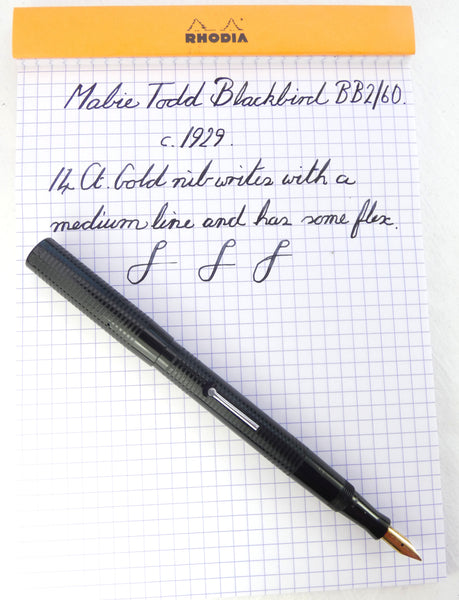 RHODIA
Mabie Todd Blackbird BB2/60.
c. 1929.
14 Ct. Gold nib writes with a
medium line and has some flex.